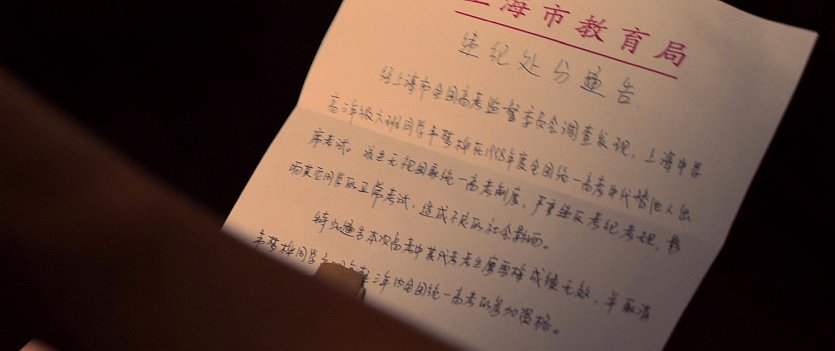 上海市教育局
违纪处分通告
经上海市全国高考监督委员会调查发现，上海中学
高三年级六班同学韦梦梓在1998年度全国统一高考中代替他人出
席考试。该生无视国家统一高考制度，严重违反考纪考规，影
响某官同学的正常考试，造成不良的社会影响。
特此通告本次高考中其代考考生 成绩无效，并取消
韦梦梓同学 三年内全国统一高考的参加资格。